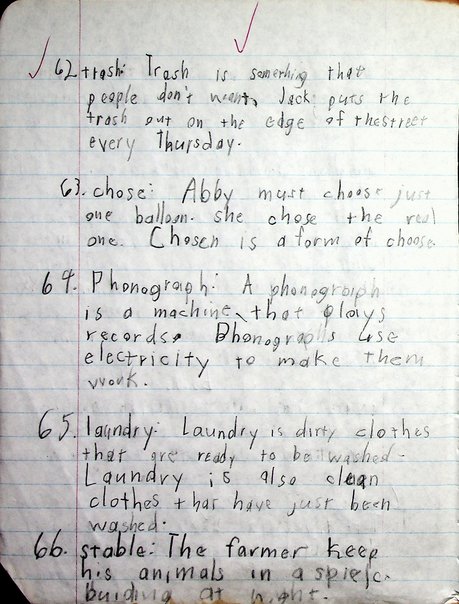 62 trash: Trash is something that
people don't want. Jack puts the
trash out on the edge of the street
every Thursday.
63. chose: Abby must choose just
one balloon. she chose the real
one. Chosen is a form of choose.
64. Phonograph: A phonograiph
is a machine that plays
records. Phonographs use
electricity to make them
work.
65. laundry: Laundry is dirty clothes
that are ready to be washed.
Laundry is also clean
clothes that have just been
washed.
66. stable: The farmer keep
his animals in a
buiding at night.